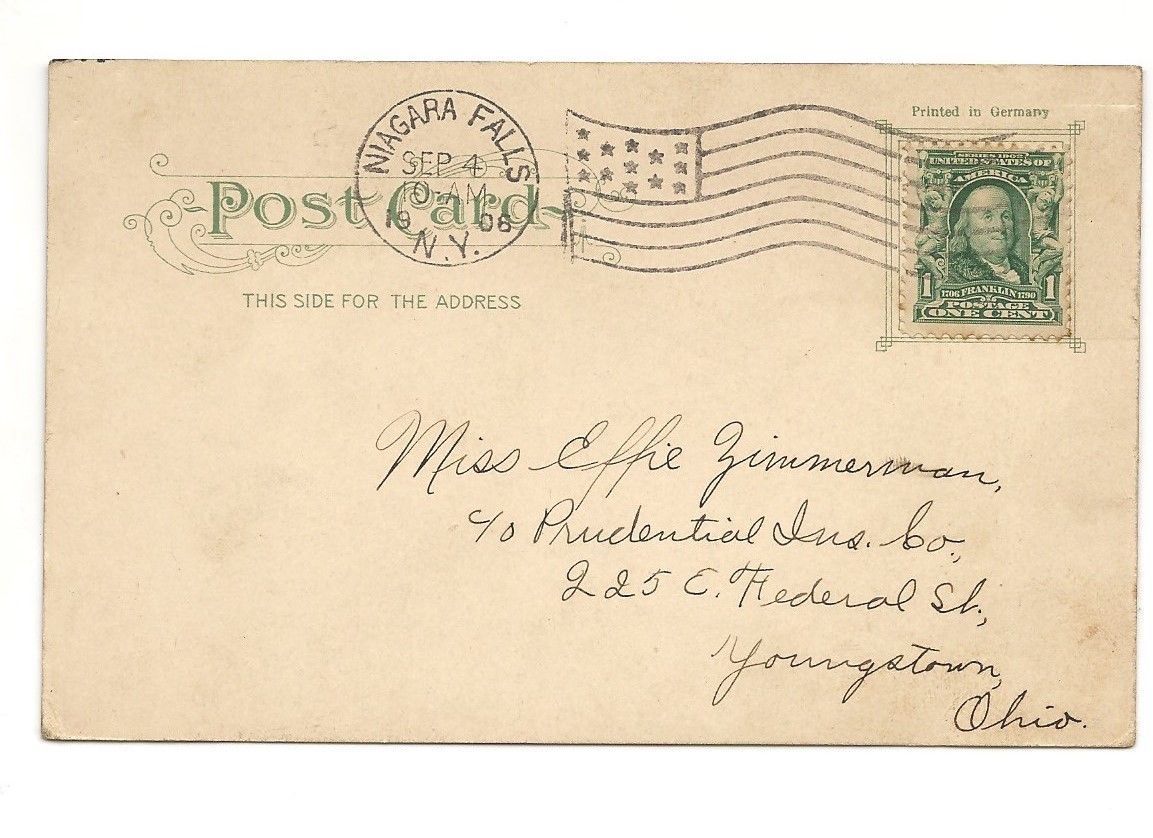 Printed in Germany
NIAGARA FALLS
SEP 4
10-AM
19 06
N.Y.
Post Card
THIS SIDE FOR THE ADDRESS
SERIES 1902
UNITED STATES OF
AMERICA
1 1
1706 FRANKLIN 1790
POSTAGE
ONE CENT
Miss Effie Zimmerman,
c/o Prudential Ins. Co.,
225 E. Federal St.,
Youngstown,
Ohio.